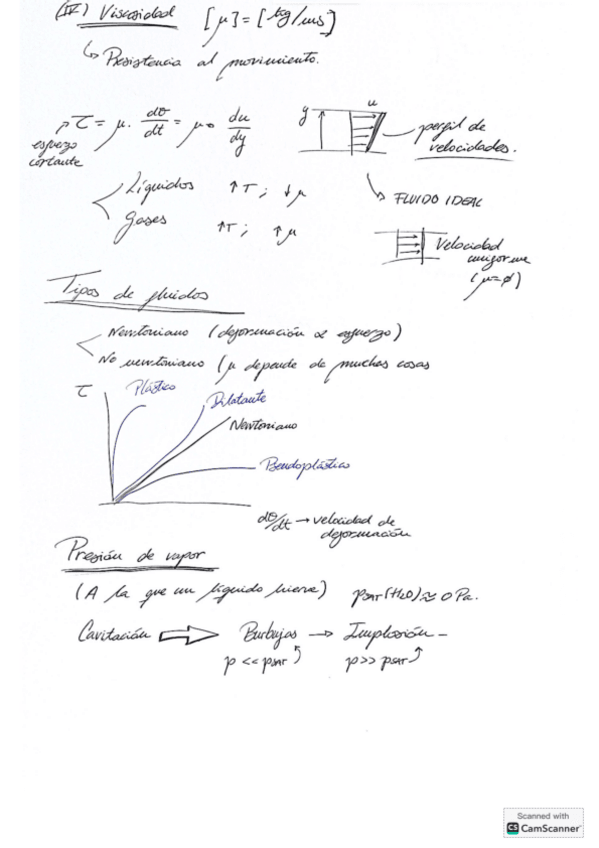 (IV) Viscosidad [μ] = [kg/ms]
↳ Resistencia al movimiento.
τ = μ · dθ/dt = μ · du/dy
esfuerzo cortante
y u
perfil de velocidades.
Líquidos ↑T ; ↓μ
Gases ↑T ; ↑μ
↳ FLUIDO IDEAL
Velocidad uniforme (μ=ϕ)
Tipos de fluidos
Newtoniano (deformación α esfuerzo)
No newtoniano (μ depende de muchas cosas
τ
Plástico
Dilatante
Newtoniano
Pseudoplástico
dθ/dt → velocidad de deformación
Presión de vapor
(A la que un líquido hierve) pSAT(H2O) ≈ 0 Pa.
Cavitación ⇒ Burbujas → Implosión -
p << pSAT p >> pSAT
Scanned with
CS CamScanner